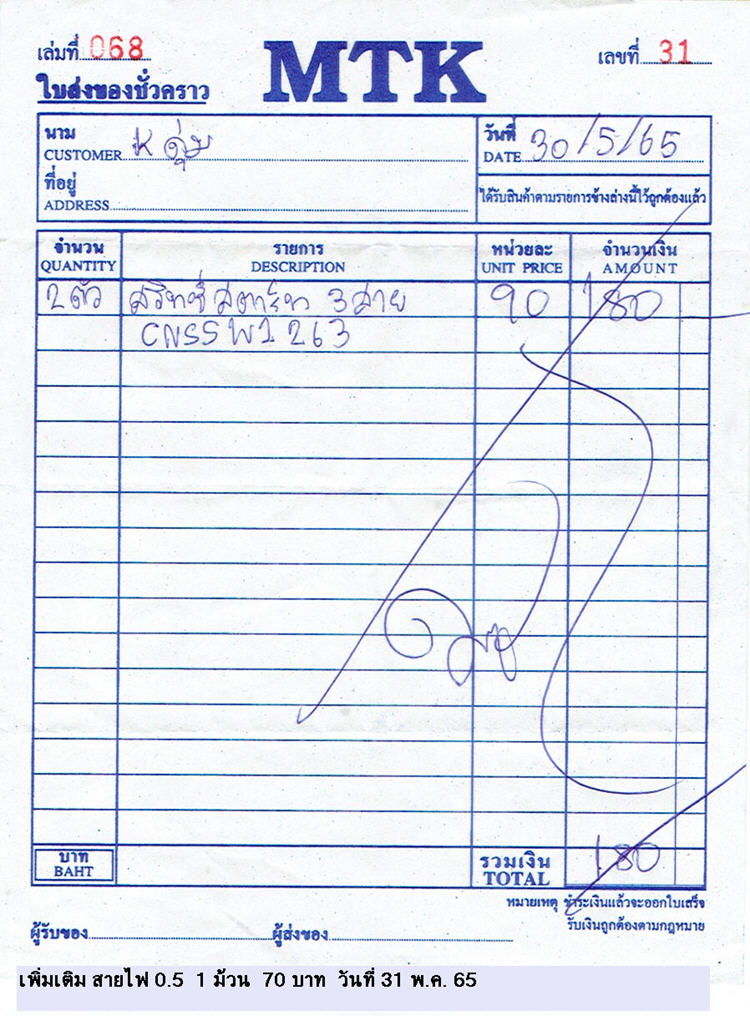 เล่มที่ 068
MTK
เลขที่ 31
ใบส่งของชั่วคราว
นาม
CUSTOMER K ตุ่ม
ที่อยู่
ADDRESS
วันที่
DATE 30/5/65
ได้รับสินค้าตามรายการข้างล่างนี้ไว้ถูกต้องแล้ว
จำนวน รายการ หน่วยละ จำนวนเงิน
QUANTITY DESCRIPTION UNIT PRICE AMOUNT
2 ตัว สวิทซ์ สตาร์ท 3 สาย 90 180
CNSSW1263
บาท
BAHT
รวมเงิน
TOTAL 180
หมายเหตุ ชำระเงินแล้วจะออกใบเสร็จ
รับเงินถูกต้องตามกฎหมาย
ผู้รับของ ผู้ส่งของ
เพิ่มเติม สายไฟ 0.5 1 ม้วน 70 บาท วันที่ 31 พ.ค. 65